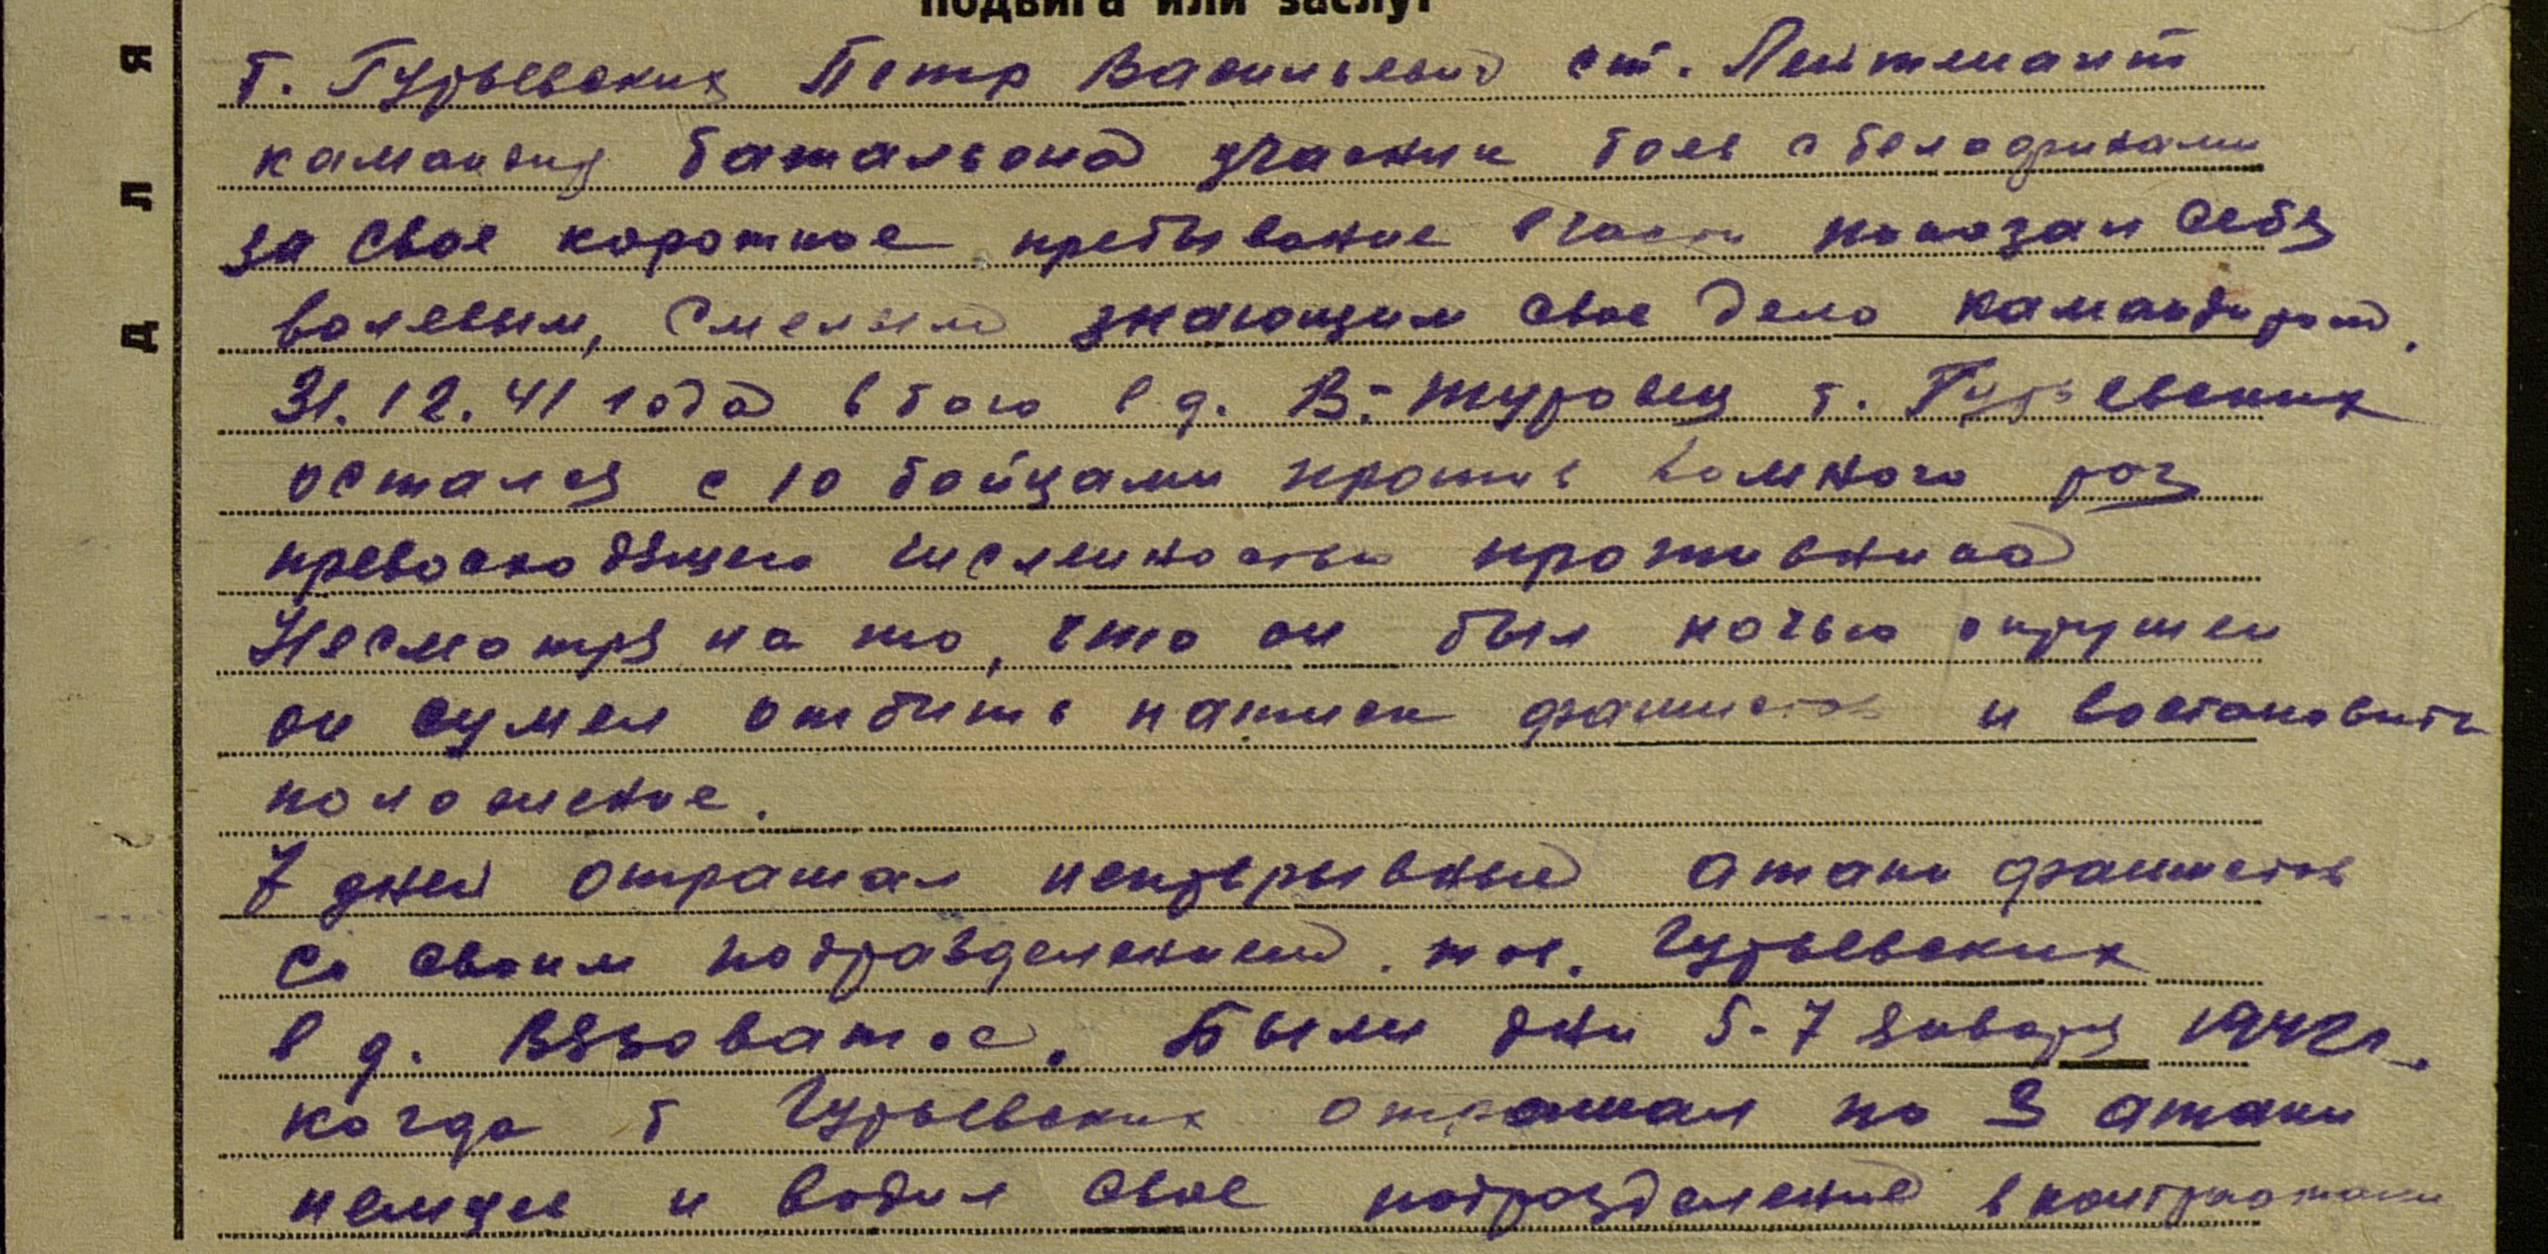 подвига или заслуг
Для
т. Гурьевских Петр Васильевич ст. Лейтенант
командир батальона участник боев с белофинами
за свое короткое пребывание в части показал себя
волевым, смелым знающим свое дело командиром.
31.12.41 года в бою в д. В.-Туровец т. Гурьевских
остался с 10 бойцами против во много раз
превосходящего численностью противника
Несмотря на то, что он был ночью окружен
он сумел отбить натиск фашистов и востановить
положение.
7 дней отражал непрерывные атаки фашистов
со своим подразделением. тов. Гурьевских
в д. Вязоватое. Были дни 5-7 января 1942г.
когда т Гурьевских отражал по 3 атаки
немцев и водил свое подразделение в контратаки